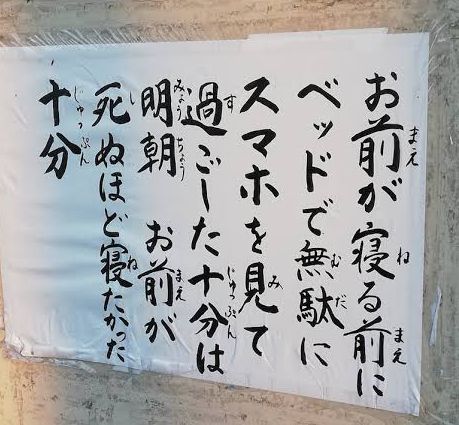 お前が寝る前に
ベッドで無駄に
スマホを見て
過ごした十分は
明朝　お前が
死ぬほど寝たかった
十分